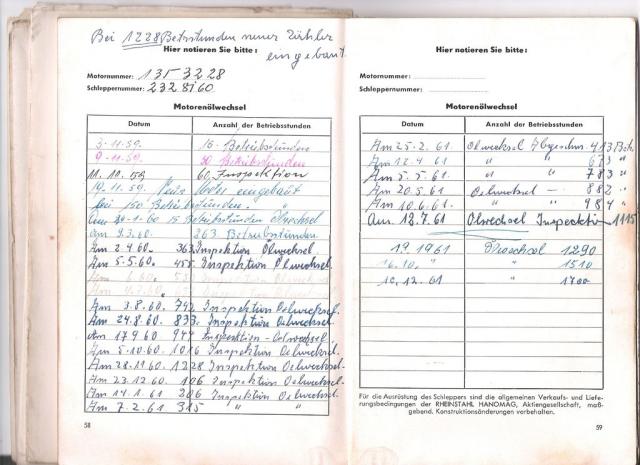 Bei 1228 Betrstunden neuer Zähler
eingebaut
Hier notieren Sie bitte:
Motornummer: 1353228
Schleppernummer: 232 8160
Motorenölwechsel
Datum Anzahl der Betriebsstunden
3.11.59. 16 Betriebstunden
9.11.59. 50 Betriebstunden
11.10.59 60 Inspektion
19.11.59. eingebaut
bei 150 Betriebstunden.
15 Betriebstunden Ölwechsel
Am 9.3.60. 263 Betriebstunden
Am 2.4.60. 363 Inspektion Ölwechsel.
Am 5.5.60. 455 Inspektion Ölwechsel.
Am 3.8.60. 742 Inspektion Oelwechsel.
Am 24.8.60. 833 Inspektion Oelwechsel.
Am 17.9.60 944 Inspektion - Oelwechsel.
Am 5.10.60. 1016 Inspektion Oelwechsel.
Am 28.11.60. 1228 Inspektion Oelwechsel.
Am 23.12.60. 106 Inspektion Oelwechsel.
Am 14.1.61 206 Inspektion Oelwechsel.
Am 7.2.61 315 " "
58
Hier notieren Sie bitte:
Motornummer:
Schleppernummer:
Motorenölwechsel
Datum Anzahl der Betriebsstunden
Am 25.2.61. Oelwechsel 413
Am 12.4.61 " " 673 "
Am 5.5.61. " " 783 "
Am 20.5.61 Oelwechsel - 882 "
Am 10.6.61. " " 984 "
Am 18.7.61 Oelwechsel Inspecktion 1115
19 1961 1290
16.10. " " 1510
10.12.61 " 1700
Für die Ausrüstung des Schleppers sind die allgemeinen Verkaufs- und Liefe-
rungsbedingungen der RHEINSTAHL HANOMAG, Aktiengesellschaft, maß-
gebend. Konstruktionsänderungen vorbehalten.
59